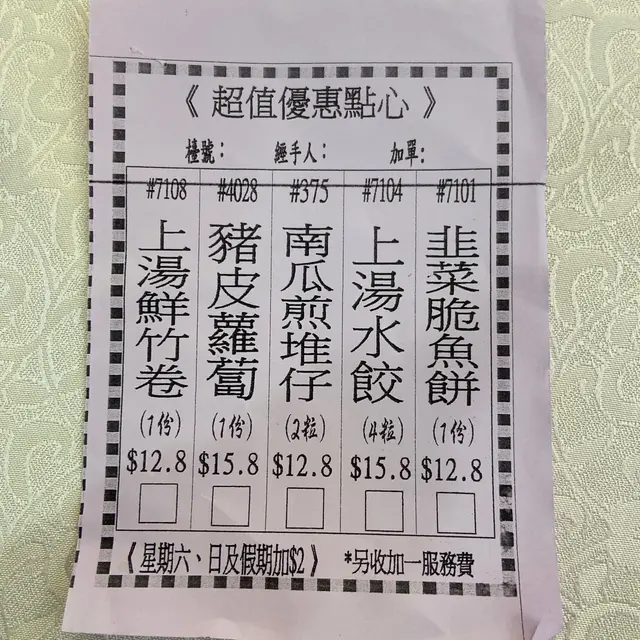 《超值優惠點心》
檯號： 經手人： 加單：
#7108 #4028 #375 #7104 #7101
上湯鮮竹卷
豬皮蘿蔔
南瓜煎堆仔
上湯水餃
韭菜脆魚餅
(1份) (1份) (2粒) (4粒) (1份)
$12.8 $15.8 $12.8 $15.8 $12.8
《星期六、日及假期加$2》 *另收加一服務費